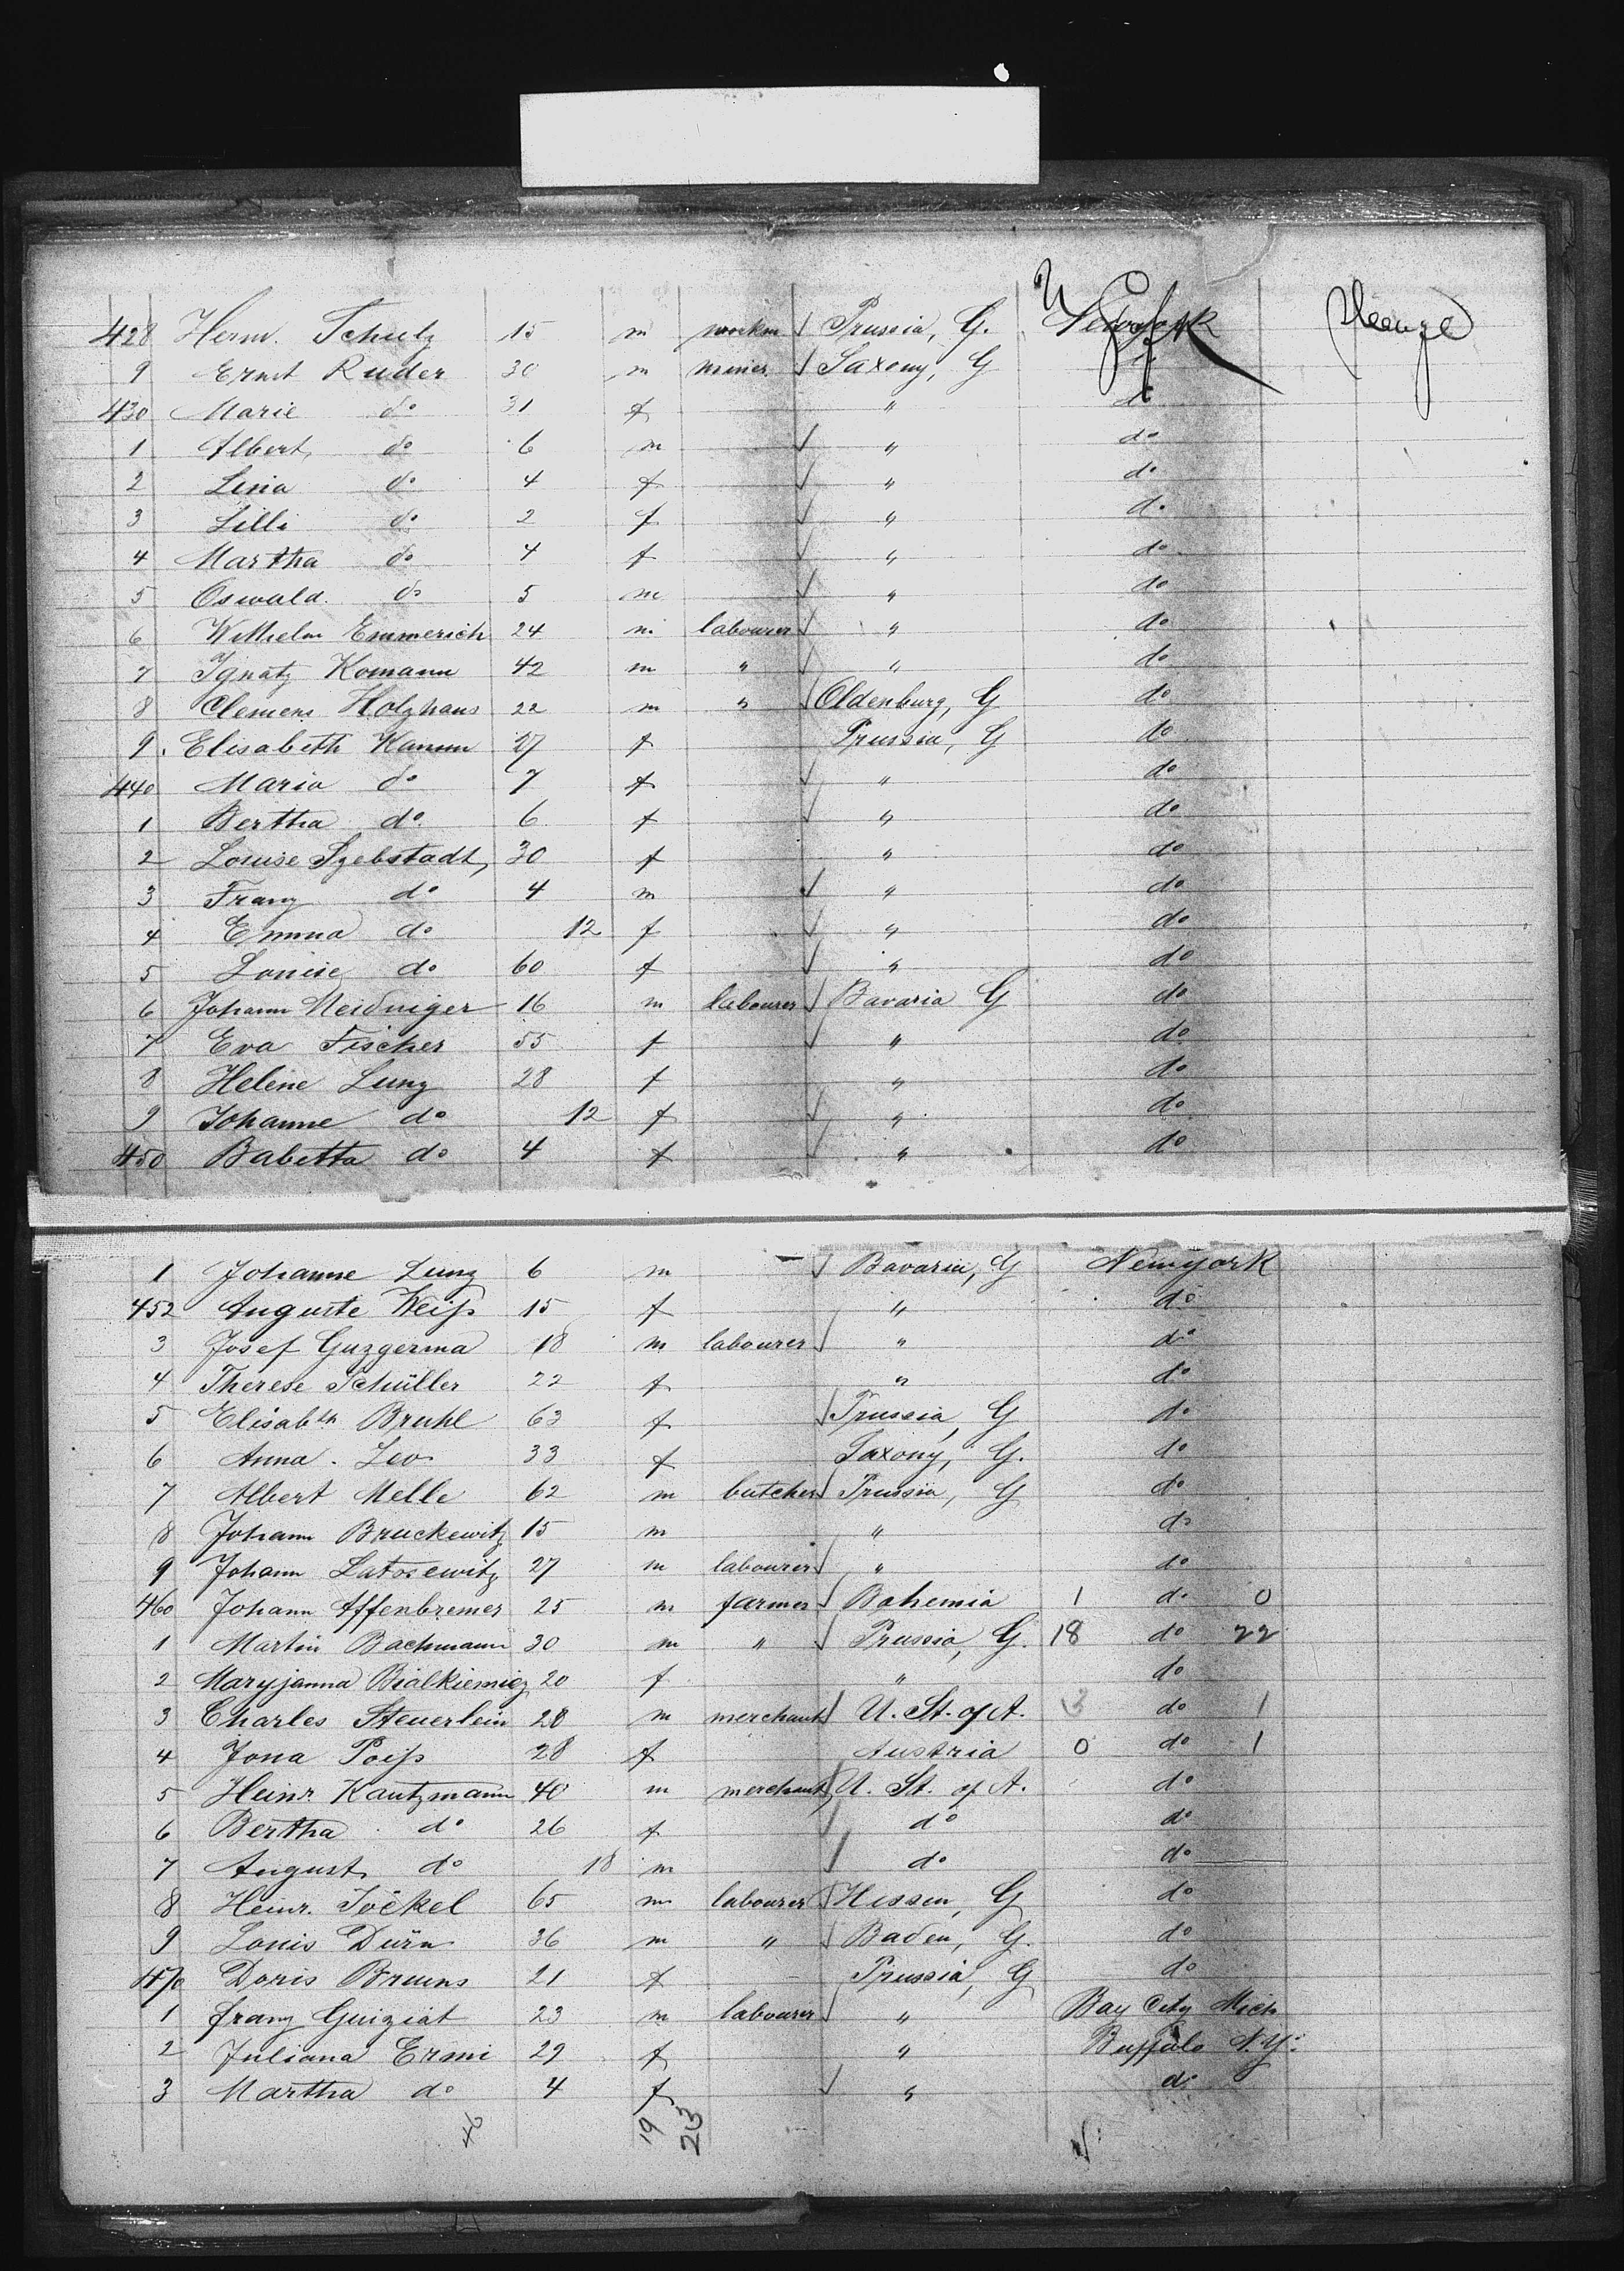 428 Herm. Schulz 15 m workm Prussia, G. Newyork Heinze
9 Ernst Ruder 30 m miner Saxony, G
430 Marie do 31 f " do
1 Albert do 6 m " do
2 Lina do 4 f " do
3 Lilli do 2 f " do
4 Martha do 4 f " do
5 Oswald do 5 m " do
6 Wilhelm Emmerich 24 m labourer " do
7 Ignatz Komann 42 m " " do
8 Clemens Holzhaus 22 m " Oldenburg, G do
9 Elisabeth Kamm 27 f Prussia, G do
440 Maria do 7 f " do
1 Bertha do 6 f " do
2 Louise Szebstadt, 30 f " do
3 Franz do 4 m " do
4 Emma do 12 f " do
5 Louise do 60 f " do
6 Johann Neidniger 16 m labourer Bavaria G do
7 Eva Fischer 55 f " do
8 Helene Lung 28 f " do
9 Johanne do 12 f " do
450 Babetta do 4 f " do
1 Johanne Lung 6 m Bavaria, G Newyork
452 Auguste Weiß 15 f " do
3 Josef Guzgerma 18 m labourer " do
4 Therese Schüller 22 f " do
5 Elisabth Bruhl 63 f Prussia, G do
6 Anna Leo 33 f Saxony, G. do
7 Albert Melle 62 m butcher Prussia, G do
8 Johann Bruckewitz 15 m " do
9 Johann Latosewitz 27 m labourer " do
460 Johann Affenbremer 25 m farmer Bohemia 1 do 0
1 Martin Bachmann 30 m " Prussia, G. 18 do 22
2 Maryjanna Bialkiemicz 20 f " do
3 Charles Steuerlein 28 m merchant U. St. of A. 3 do 1
4 Jona Poiß 28 f Austria 0 do 1
5 Heinr. Kautzmann 40 m merchant U. St. of A. do
6 Bertha do 26 f do do
7 August do 18 m do do
8 Heinr. Jöckel 65 m labourer Hessen, G do
9 Louis Dürn 36 m " Baden, G. do
470 Doris Bruns 21 f Prussia, G do
1 Franz Guiziat 23 m labourer " Bay City Mich
2 Juliana Ermi 29 f " Buffalo N.Y.
3 Martha do 4 f " do
19 213